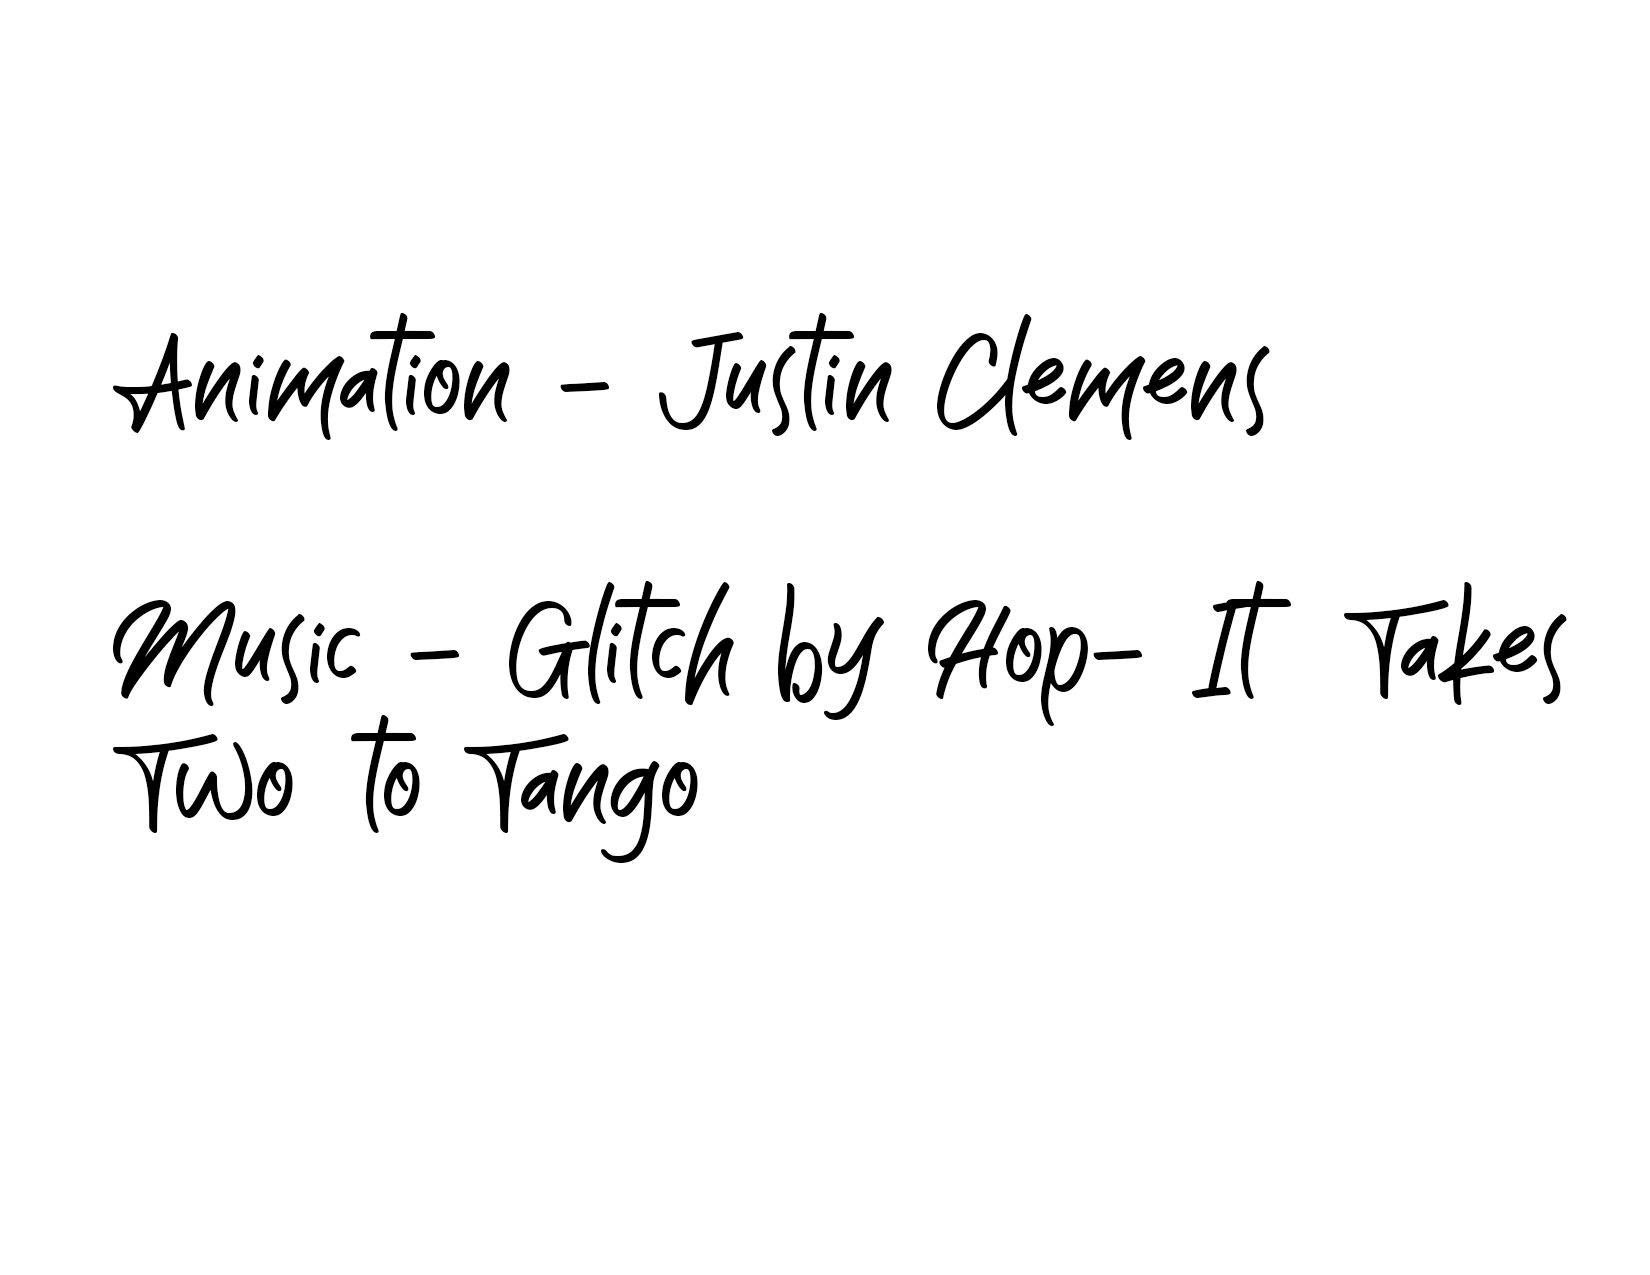 Animation - Justin Clemens
Music - Glitch by Hop- It Takes
Two to Tango